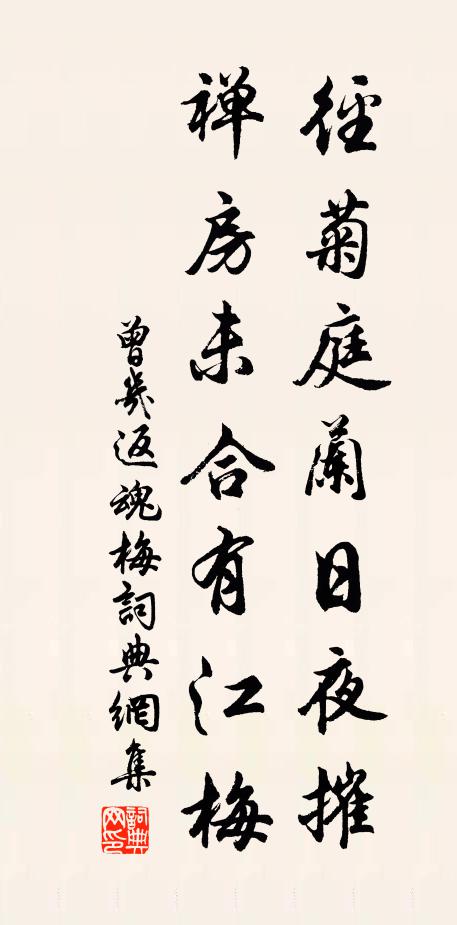 徑菊庭蘭日夜摧
禅房未合有江梅
曾幾返魂梅詞典網集
詞典网印